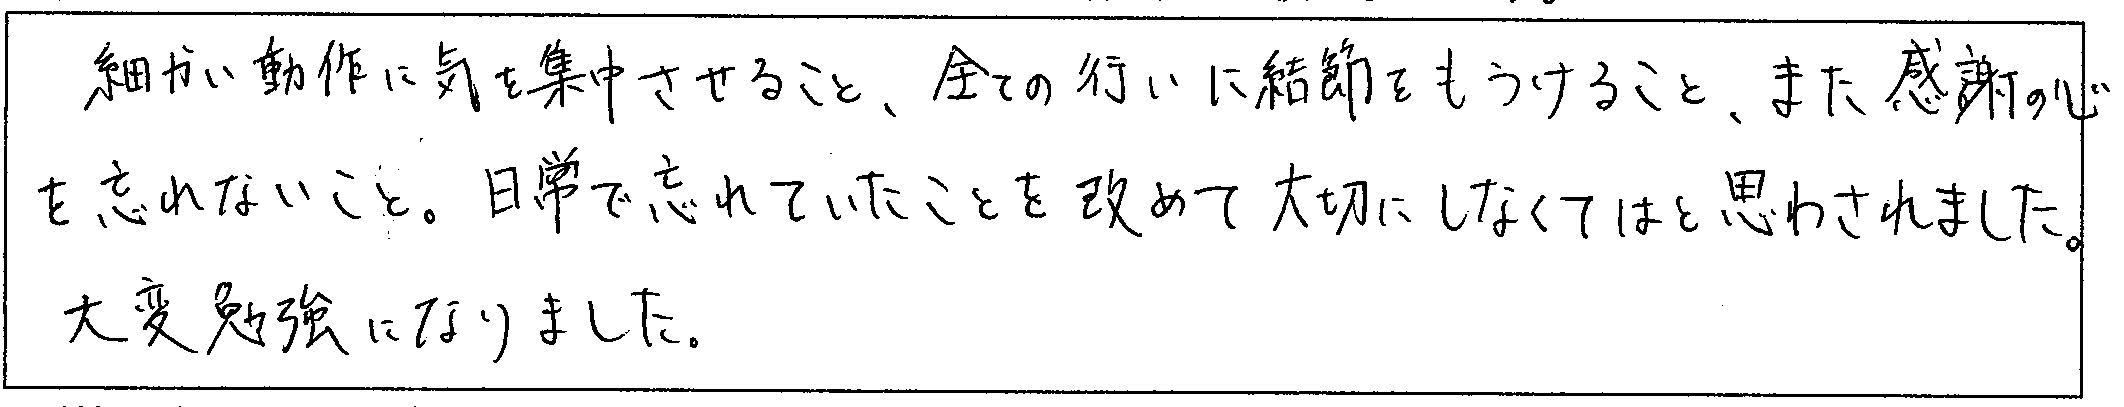 細かい動作に気を集中させること、全ての行いに結節をもうけること、また感謝の心
を忘れないこと。日常で忘れていたことを改めて大切にしなくてはと思わされました。
大変勉強になりました。